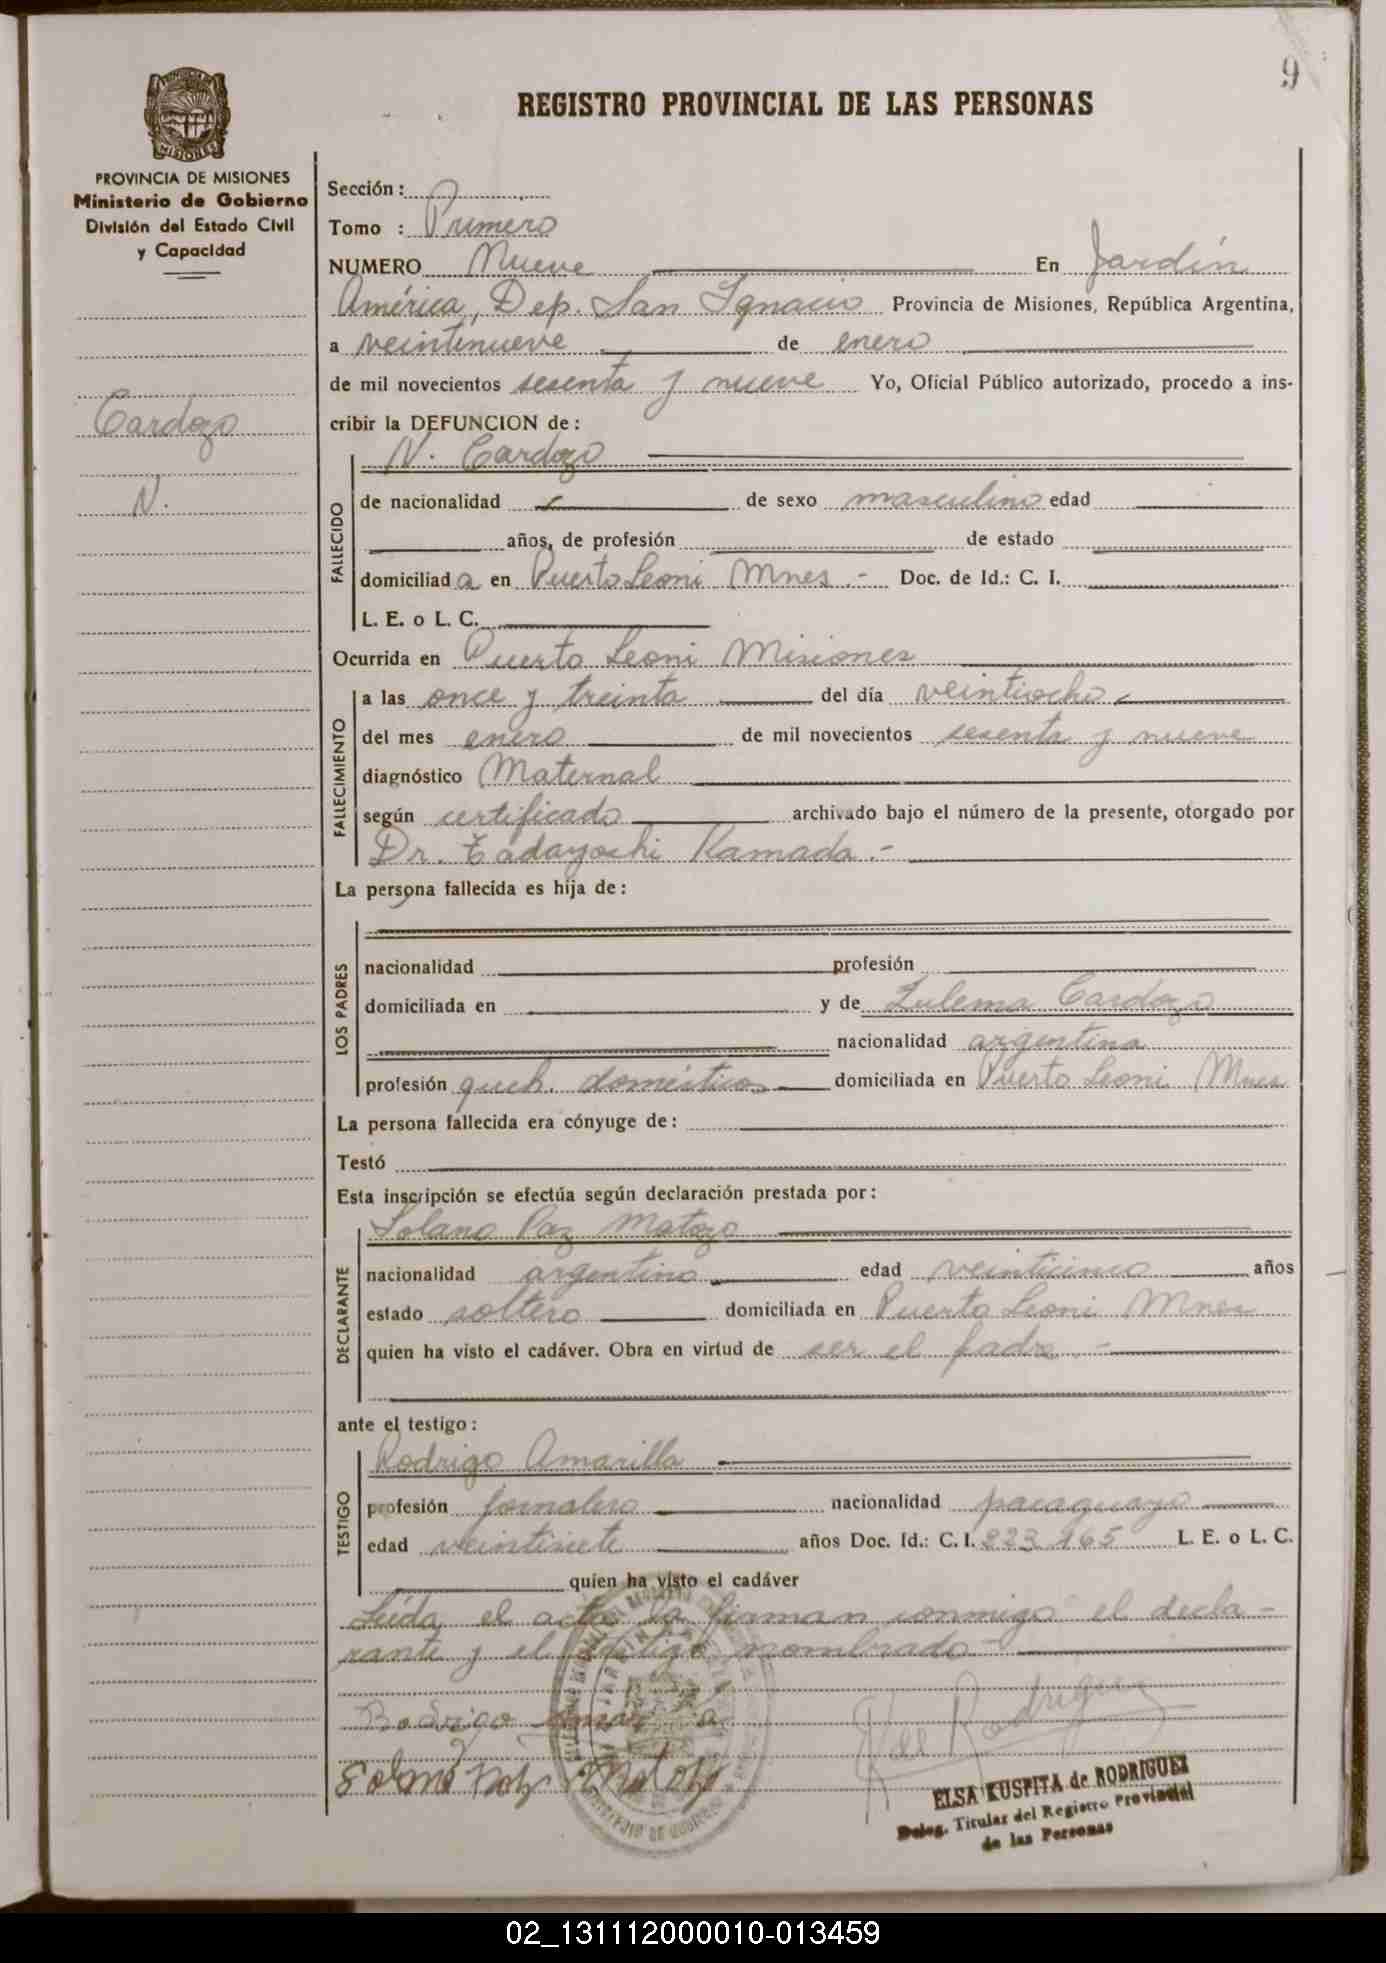 9
REGISTRO PROVINCIAL DE LAS PERSONAS
PROVINCIA DE MISIONES
Ministerio de Gobierno
División del Estado Civil
y Capacidad
Cardozo
N.
Sección :
Tomo : Primero
NUMERO Nueve En Jardín
América, Dep. San Ignacio Provincia de Misiones, República Argentina,
a veintinueve de enero
de mil novecientos sesenta y nueve Yo, Oficial Público autorizado, procedo a ins-
cribir la DEFUNCION de :
N. Cardozo
FALLECIDO
de nacionalidad de sexo masculino edad
años, de profesión de estado
domiciliad a en Puerto Leoni Mnes.- Doc. de Id.: C. I.
L. E. o L. C.
Ocurrida en Puerto Leoni Misiones
FALLECIMIENTO
a las once y treinta del día veintiocho
del mes enero de mil novecientos sesenta y nueve
diagnóstico Maternal
según certificado archivado bajo el número de la presente, otorgado por
Dr. Tadayoshi Kamada.-
La persona fallecida es hija de :
LOS PADRES
nacionalidad profesión
domiciliada en y de Zulema Cardozo
nacionalidad argentina
profesión queh. domésticos domiciliada en Puerto Leoni Mnes
La persona fallecida era cónyuge de :
Testó
Esta inscripción se efectúa según declaración prestada por :
Solano Paz Matozo
DECLARANTE
nacionalidad argentino edad veinticinco años
estado soltero domiciliada en Puerto Leoni Mnes
quien ha visto el cadáver. Obra en virtud de ser el padre.-
ante el testigo :
Rodrigo Amarilla
TESTIGO
profesión jornalero nacionalidad paraguayo
edad veintisiete años Doc. Id.: C. I. 223.165 L. E. o L. C.
quien ha visto el cadáver
Leída el acta la firman conmigo el decla-
rante y el testigo nombrado-
Rodrigo
ELSA KUSPITA de RODRIGUEZ
Deleg. Titular del Registro Provincial
de las Personas
02_131112000010-013459